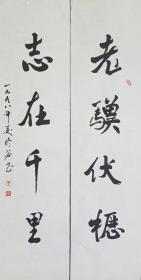 老骥伏枥
志在千里
一九九八年夏